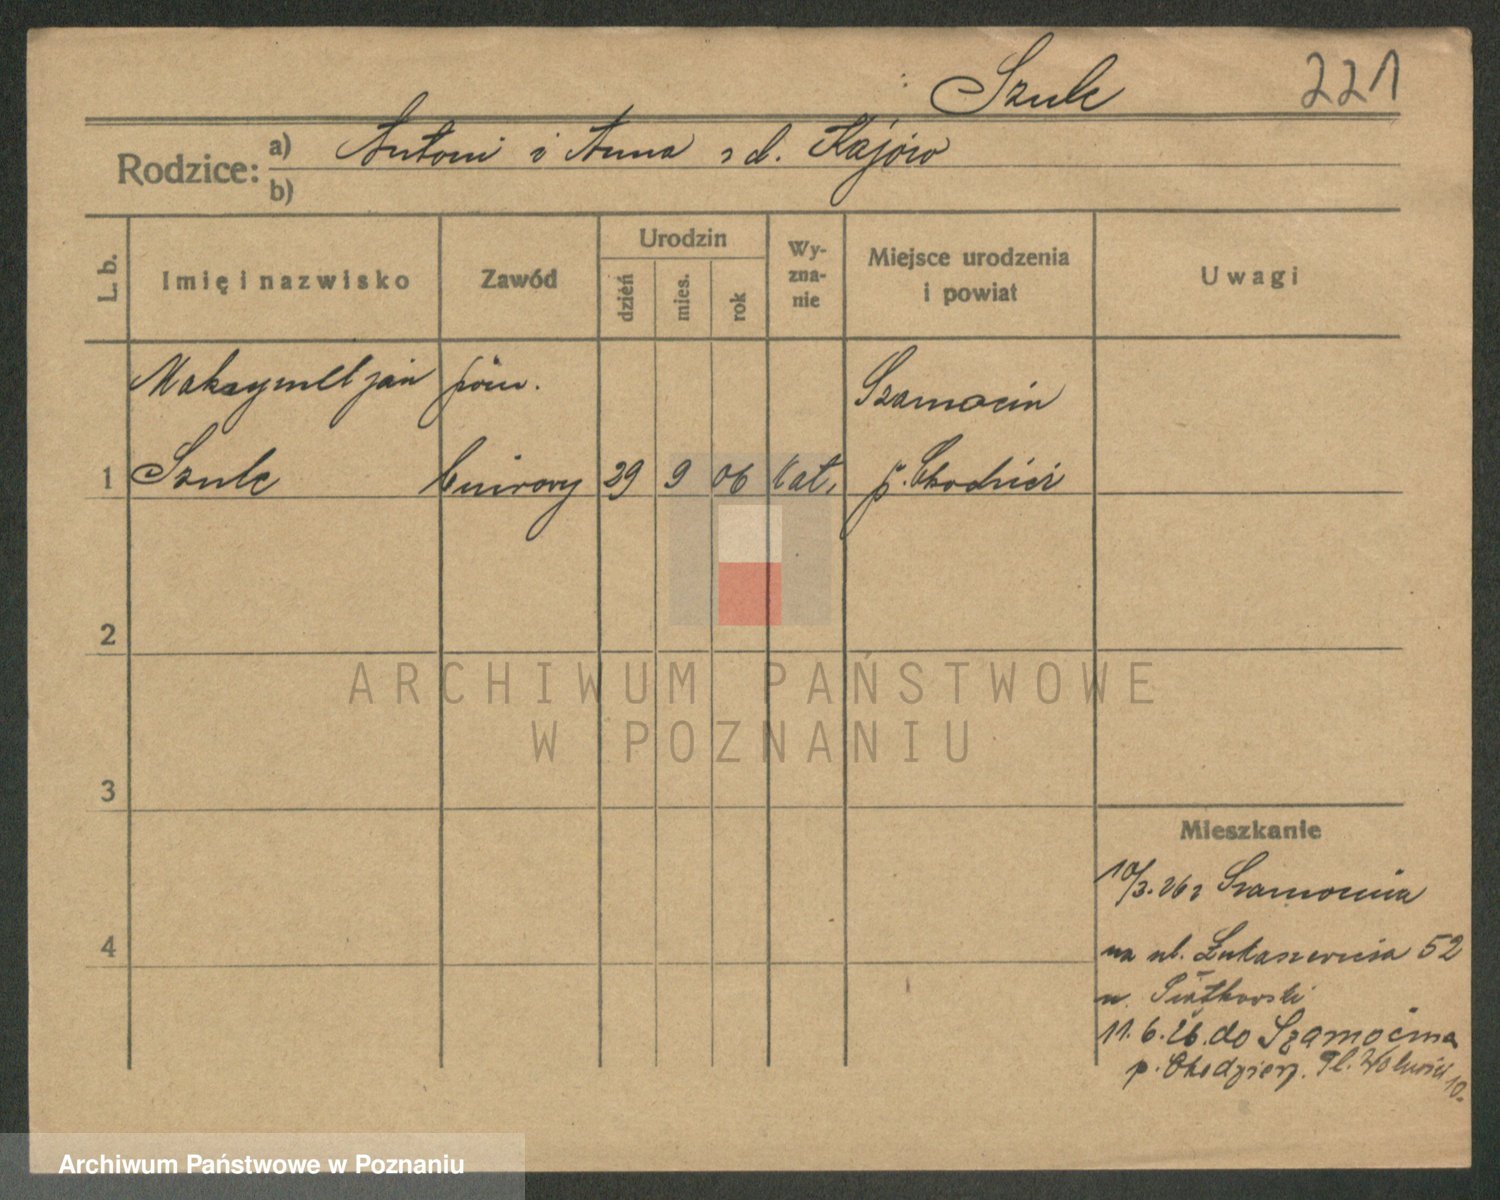 Szulc 221
Rodzice: a) Antoni i Anna z d. Kajów
b)
L. b. Imię i nazwisko Zawód Urodzin dzień mies. rok Wy-zna-nie Miejsce urodzenia i powiat Uwagi
Maksymiljan pom. Szamocin
1 Szulc biurowy 29 9 06 kat. p. Chodzież
2
3
4
Mieszkanie
10/3.26 z Szamocina
na ul. Łukaszewicza 52
u. Piątkowski
11.6.26. do Szamocina
p. Chodzież. Pl. Wolności 10.
ARCHIWUM PAŃSTWOWE
W POZNANIU
Archiwum Państwowe w Poznaniu